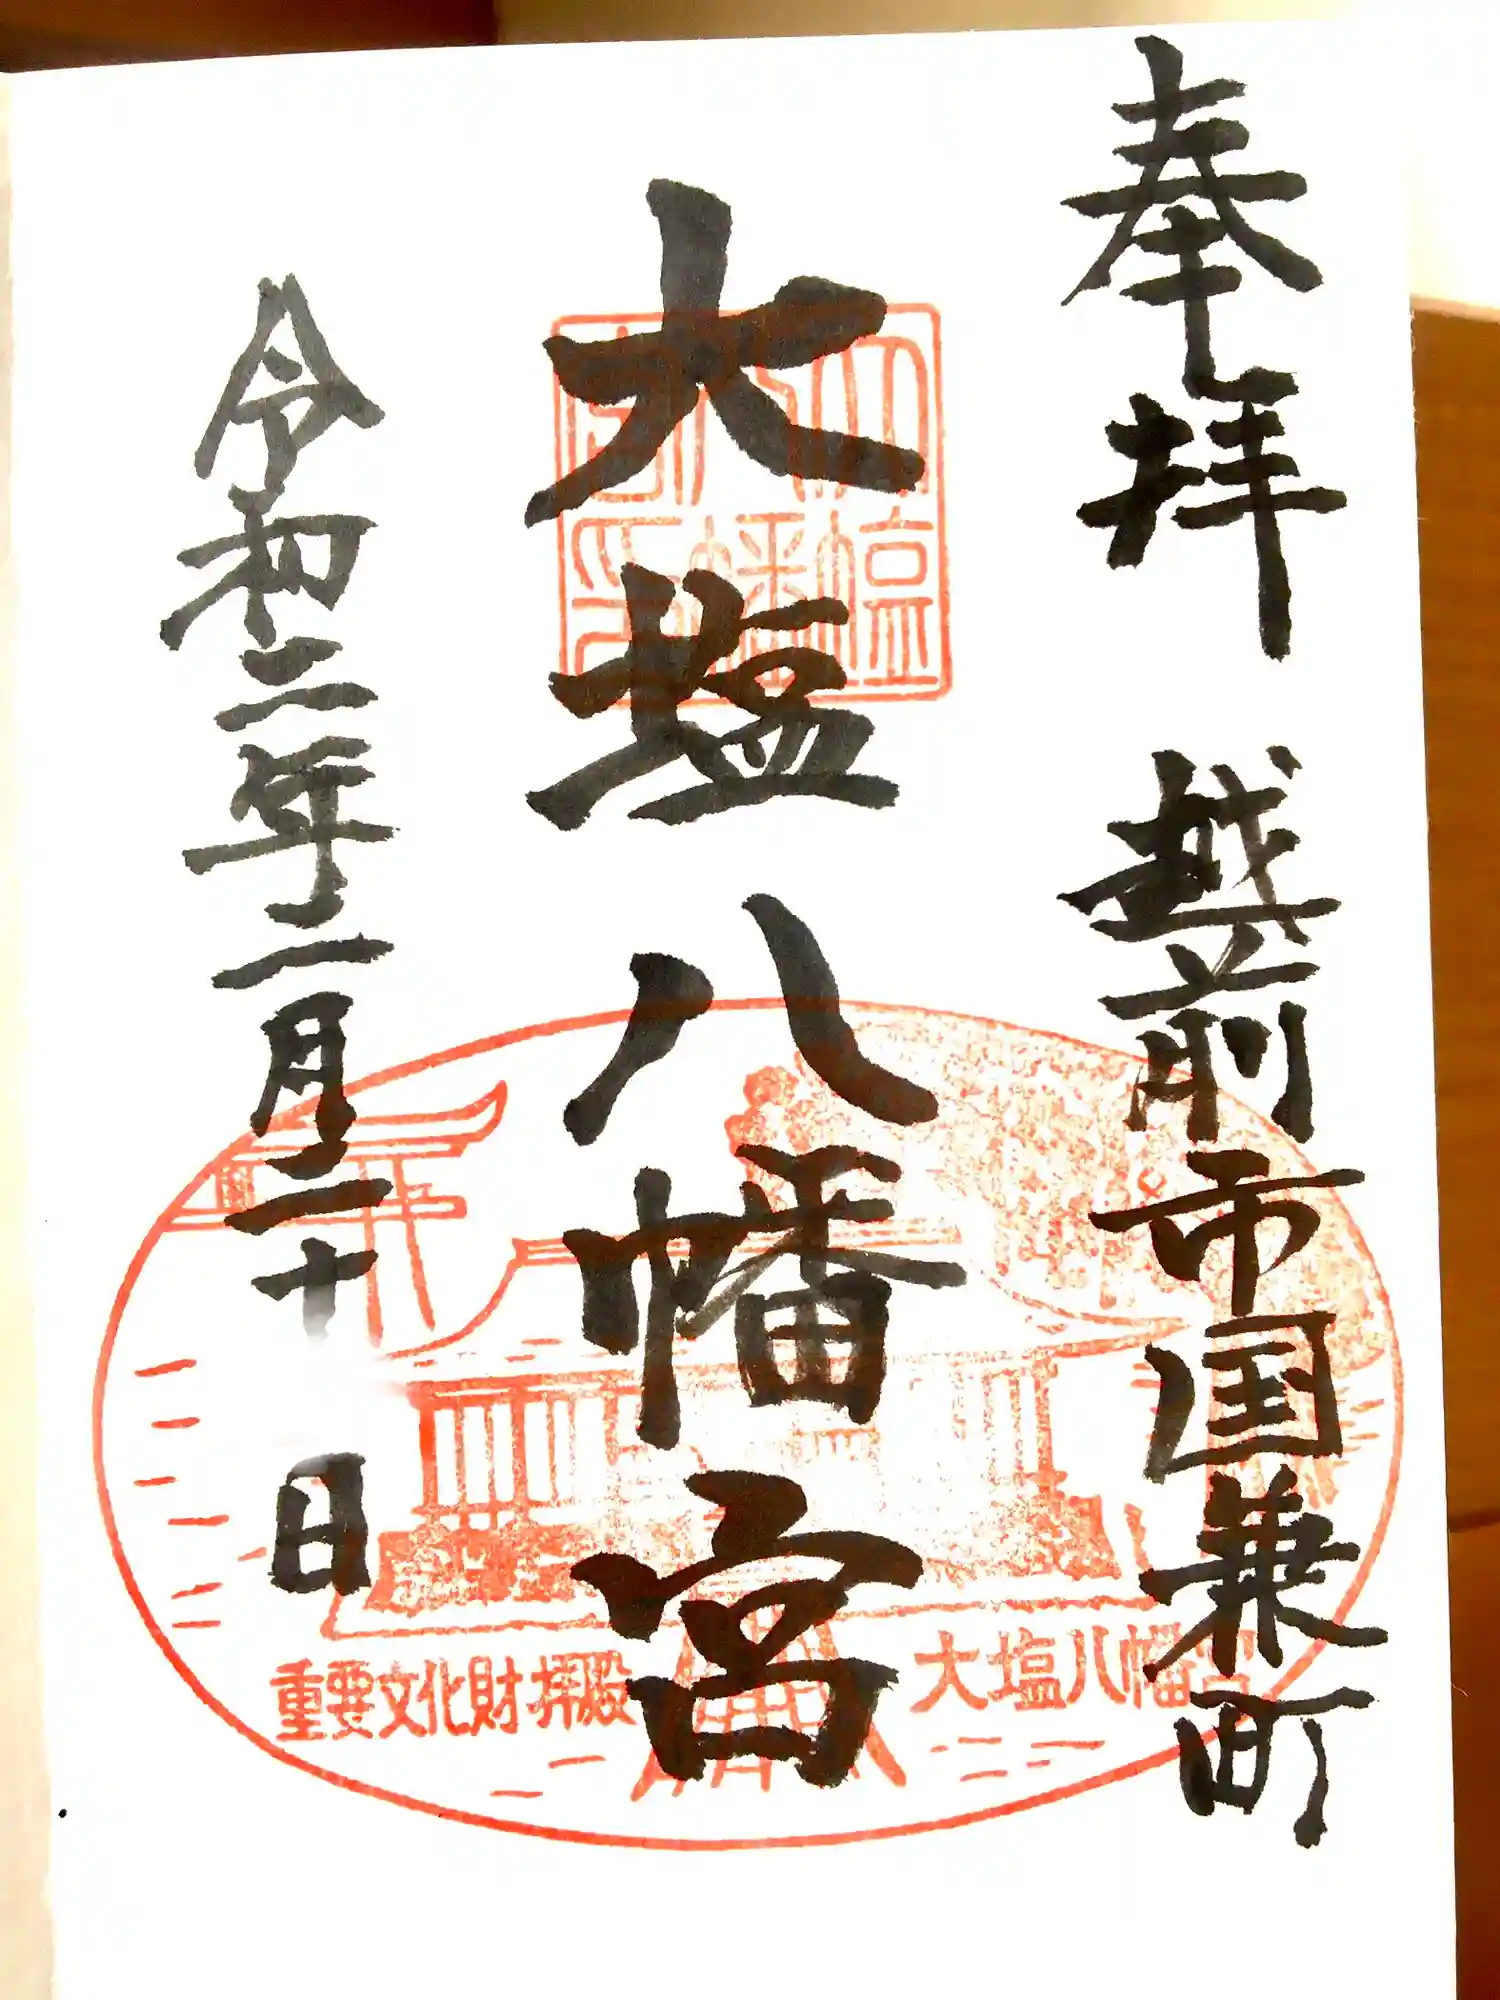 奉拝 越前市国兼町
大塩八幡宮
令和二年二月二十 日
大塩
八幡
宮印
重要文化財拝殿
大塩八幡宮